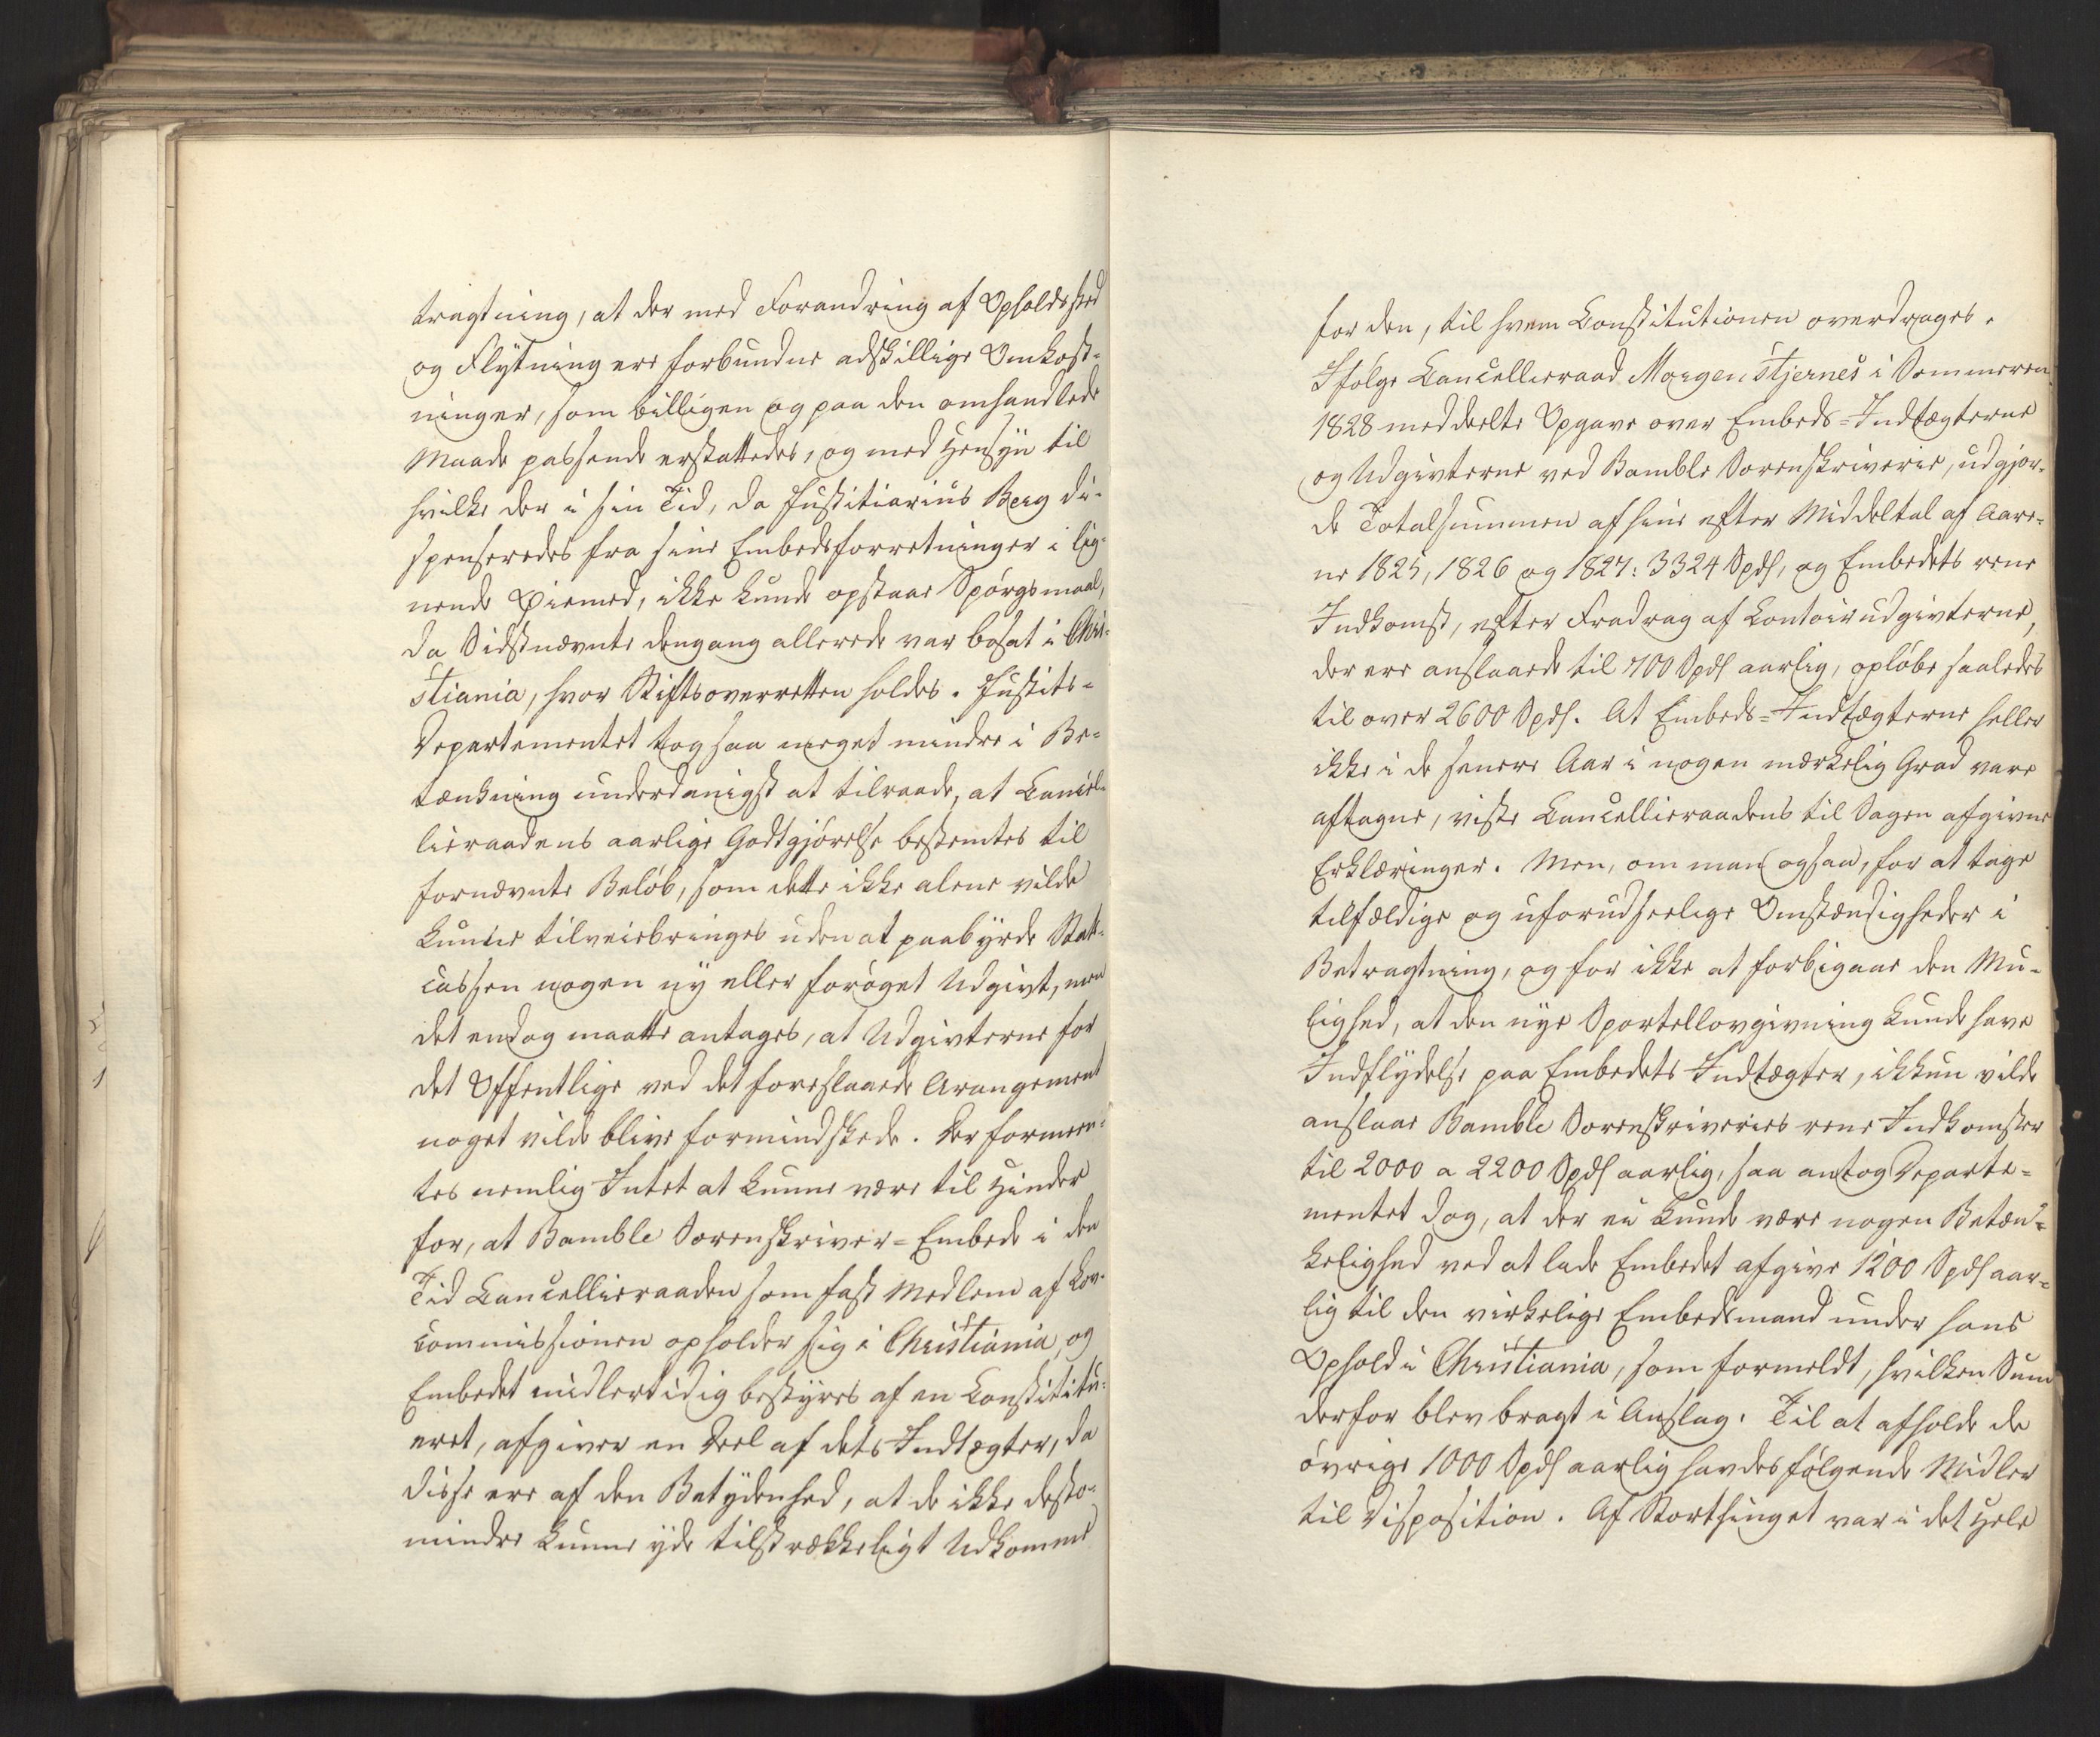 tragtning, at der med Forandring af Opholdssted
og Flytning ere forbundne adskillige Omkost-
ninger, som billigen og paa den omhandlede
Maade passende erstattedes, og med Hensyn til
hvilke der i sin Tid, da Justitiarius Berg di-
spenseredes fra sine Embedsforretninger i lig-
nende Øiemed, ikke kunde opstaae Spørgsmaal,
da Sidstnævnte dengang allerede var bosat i Chri-
stiania, hvor Stiftsoverretten holdes. Justits-
Departementet tog saa meget mindre i Be-
tænkning underdanigst at tilraade, at Cancel-
lieraadens aarlige Godtgjørelse bestemtes til
fornævnte Beløb, som dette ikke alene vilde
kunne tilveiebringes uden at paabyrde Stats-
cassen nogen ny eller forøget Udgivt, men
det endog maatte antages, at Udgivterne for
det Offentlige ved det foreslaaede Arangement
noget vilde blive formindskede. Der formeen-
tes nemlig Intet at kunne være til Hinder
for, at Bamble Sorenskriver-Embede i den
Tid Cancellieraaden som fast Medlem af Lov-
commissionen opholder sig i Christiania, og
Embedet midlertidig bestyres af en Constitu-
eret, afgiver en Deel af dets Indtægter, da
disse ere af den Betydenhed, at de ikke desto-
mindre kunne yde tilstrækkeligt Udkomme
for den, til hvem Constitutionen overdrages.
Ifølge Cancellieraad Morgenstjernes i Sommeren
1828 meddeelte Opgave over Embeds-Indtægterne
og Udgivterne ved Bamble Sorenskriverie, udgjor-
de Totalsummen af hine efter Middeltal af Aare-
ne 1825, 1826 og 1827: 3324 Spds, og Embedets rene
Indkomst, efter Fradrag af Contoirudgivterne,
der ere anslaaede til 700 Spds aarlig, opløbe saaledes
til over 2600 Spds. At Embeds-Indtægterne heller
ikke i de senere Aar i nogen mærkelig Grad vare
aftagne, viste Cancellieraadens til Sagen afgivne
Erklæringer. Men, om man ogsaa, for at tage
tilfældige og uforudseelige Omstændigheder i
Betragtning, og for ikke at forbigaae den Mu-
lighed, at den nye Sportellovgivning kunde have
Indflydelse paa Embedets Indtægter, ikkun vilde
anslaae Bamble Sorenskriveries rene Indkomster
til 2000 a 2200 Spds aarlig, saa antog Departe-
mentet dog, at der ei kunde være nogen Betænk-
kelighed ved at lade Embedet afgive 1200 Spds aar-
lig til den virkelige Embedsmand under hans
Ophold i Christiania, som formeldt, hvilken Sum
derfor blev bragt i Anslag. Til at afholde de
øvrige 1000 Spds aarlig havdes følgende Midler
til Disposition. Af Storthinget var i det Hele